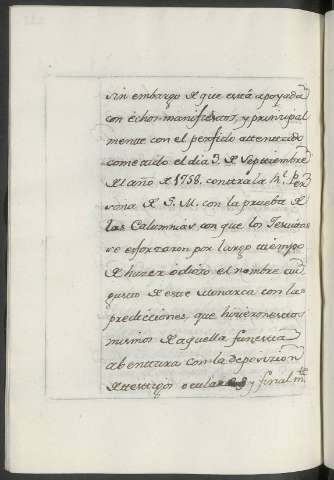 sin embargo de que está apoyada
con echos manifiestos, y principal
mente con el perfido attentado
cometido el dia 3. de Septiembre
del año de 1758. contra la R.l Per
sona de S. M. con la prueba de
las Calumnias con que los Jesuitas
se esforzaron por largo tiempo
de hazer odioso el nombre au
gusto de este Monarca con las
predicciones que hizieron estos
mismos de aquella funesta
abentura con la deposizion
de testigos oculares y final m.te